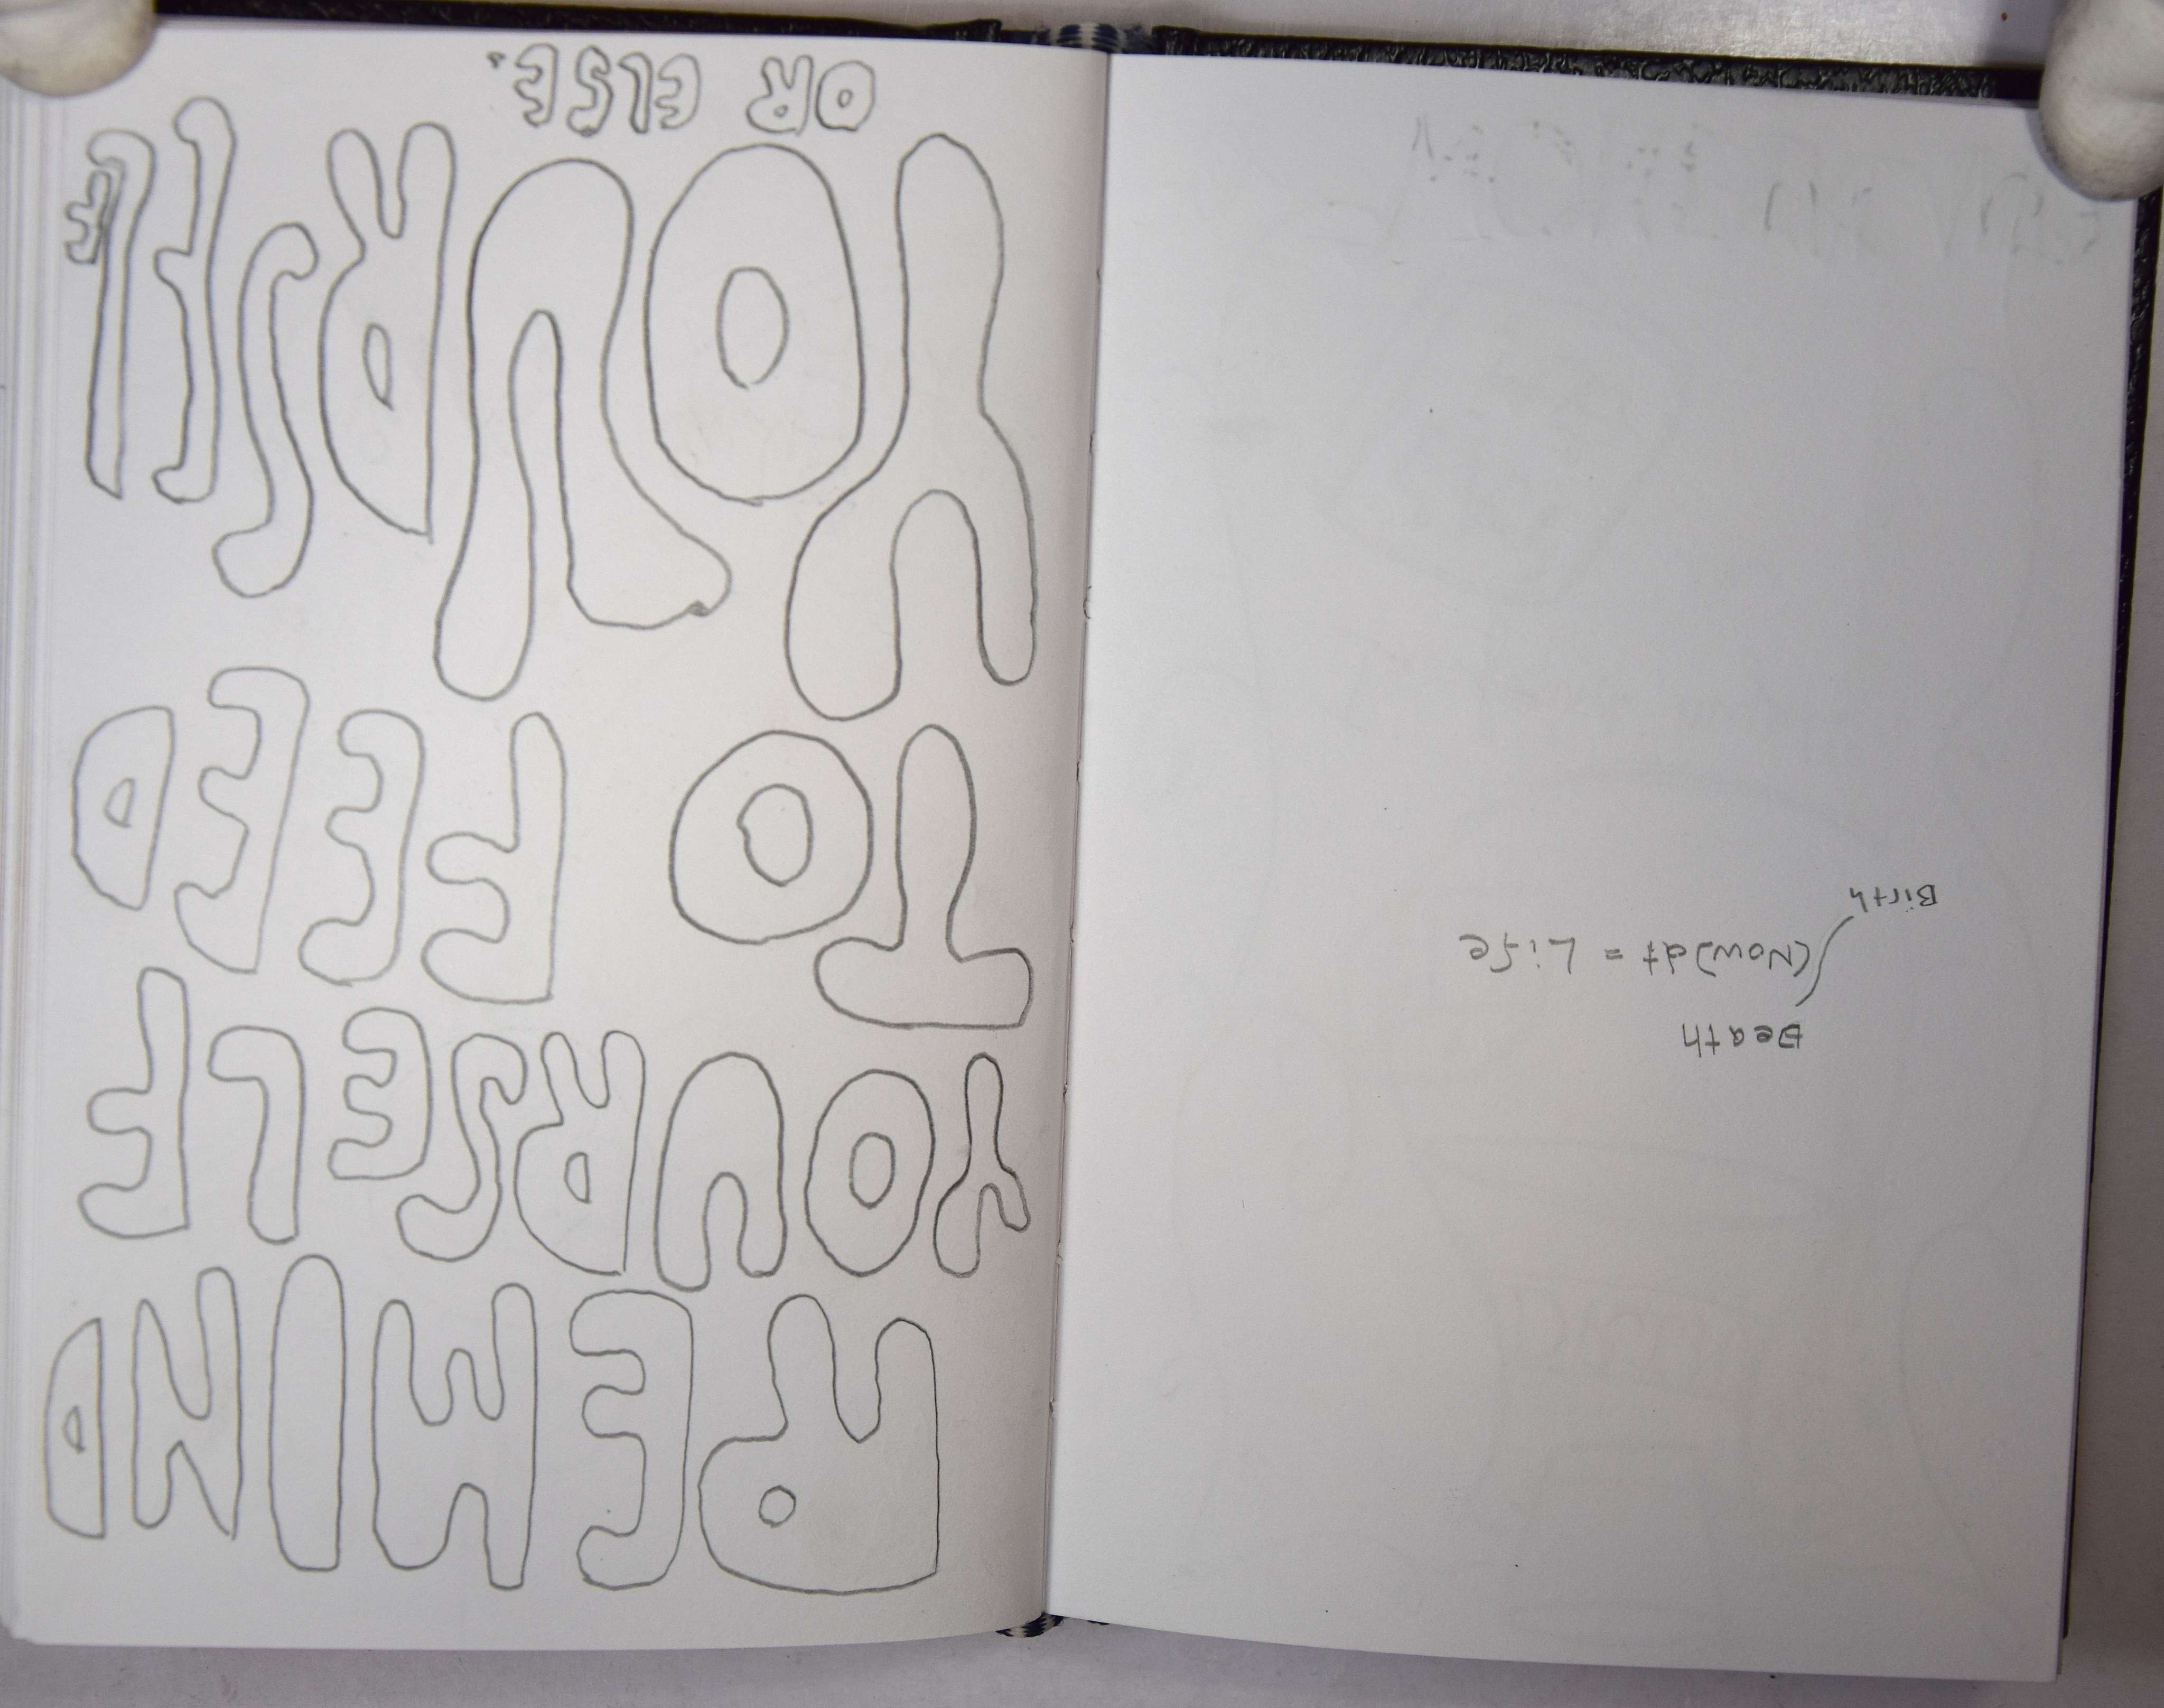 Death
∫(Now)dt = Life
Birth
REMIND
YOURSELF
TO FEED
YOURSELF
OR ELSE.